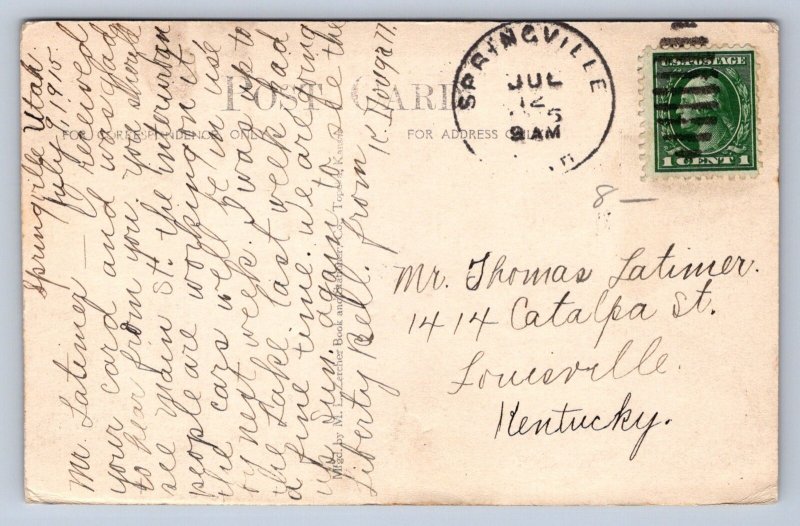 Springville Utah.
July 9, 1915
Mr. Latimer — I received
your card and was glad
to hear from you. You should
see Main St. the interurban
people are working on it
the cars will be in use
by next week. I was up to
the Lake last week had
a fine time. We are going
up Sun. again to see the
Liberty Bell. from
POST CARD
FOR CORRESPONDENCE ONLY
FOR ADDRESS ONLY
Mfgd. by M. L. Zercher Book and Stationery Co., Topeka, Kansas
SPRINGVILLE
JUL
12
9 AM
U.S. POSTAGE
1 CENT 1
8 —
Mr. Thomas Latimer.
1414 Catalpa St.
Louisville.
Kentucky.